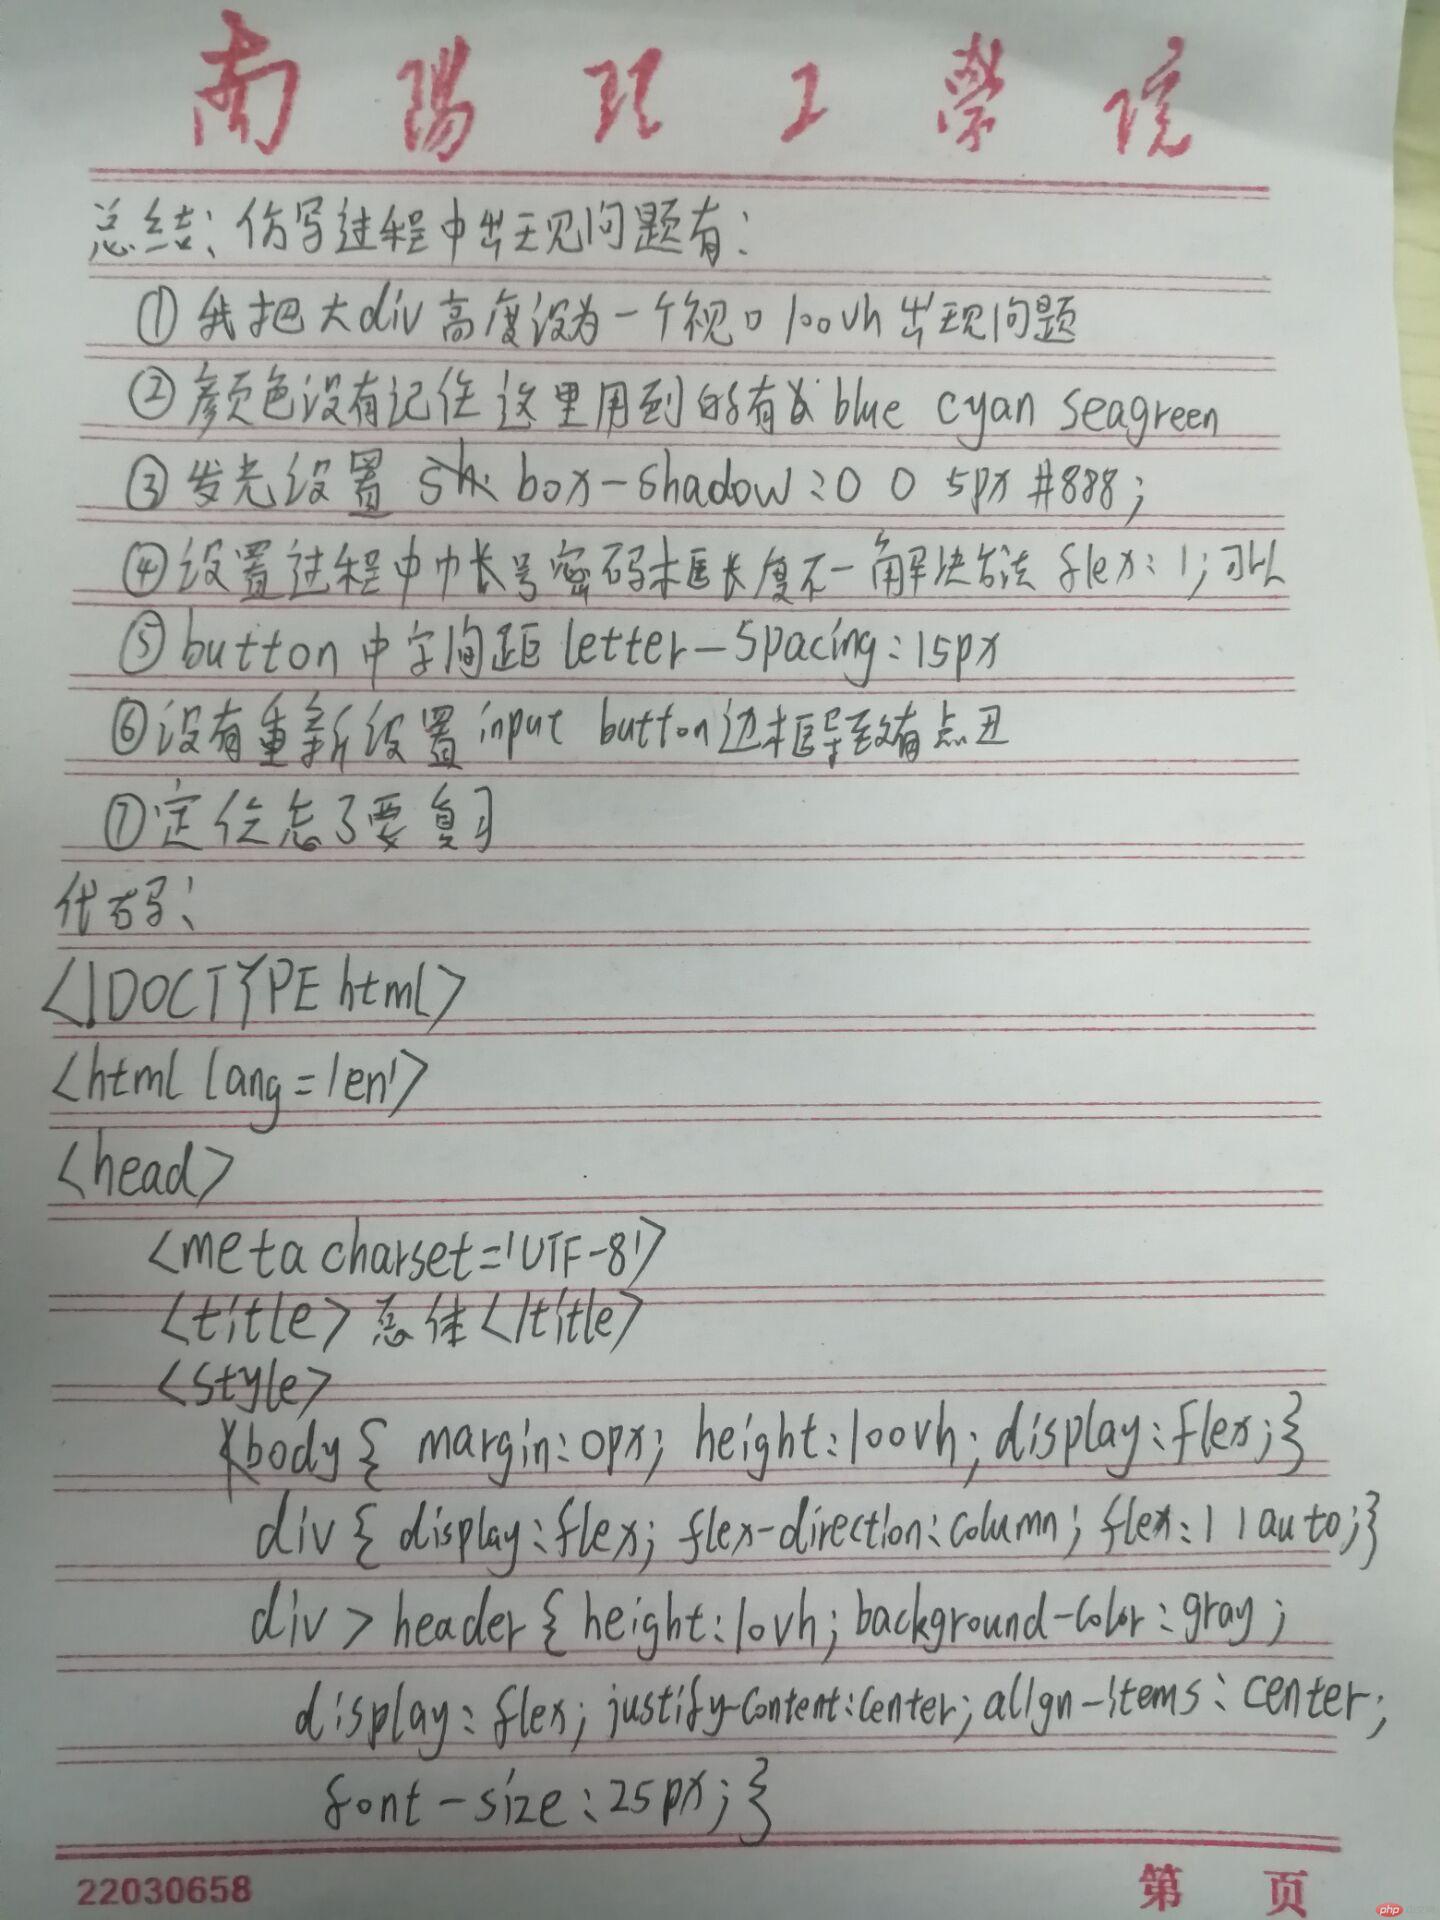 南陽理工學院
总结：仿写过程中出现问题有：
①我把大div高度设为一个视口100vh出现问题
②颜色没有记住 这里用到的有 blue cyan seagreen
③发光设置 box-shadow:0 0 5px #888;
④设置过程中 帐号密码框长度不一 解决方法 flex:1;可以
⑤button中字间距 letter-spacing:15px
⑥没有重新设置input button边框导致有点丑
⑦定位忘了要复习
代码：
<!DOCTYPE html>
<html lang='en'>
<head>
<meta charset='UTF-8'>
<title>总体</title>
<style>
body{ margin:0px; height:100vh; display:flex;}
div{ display:flex; flex-direction:column; flex:1 1 auto;}
div>header{height:10vh; background-color:gray;
display:flex; justify-content:center; align-items:center;
font-size:25px;}
22030658 第 页
php